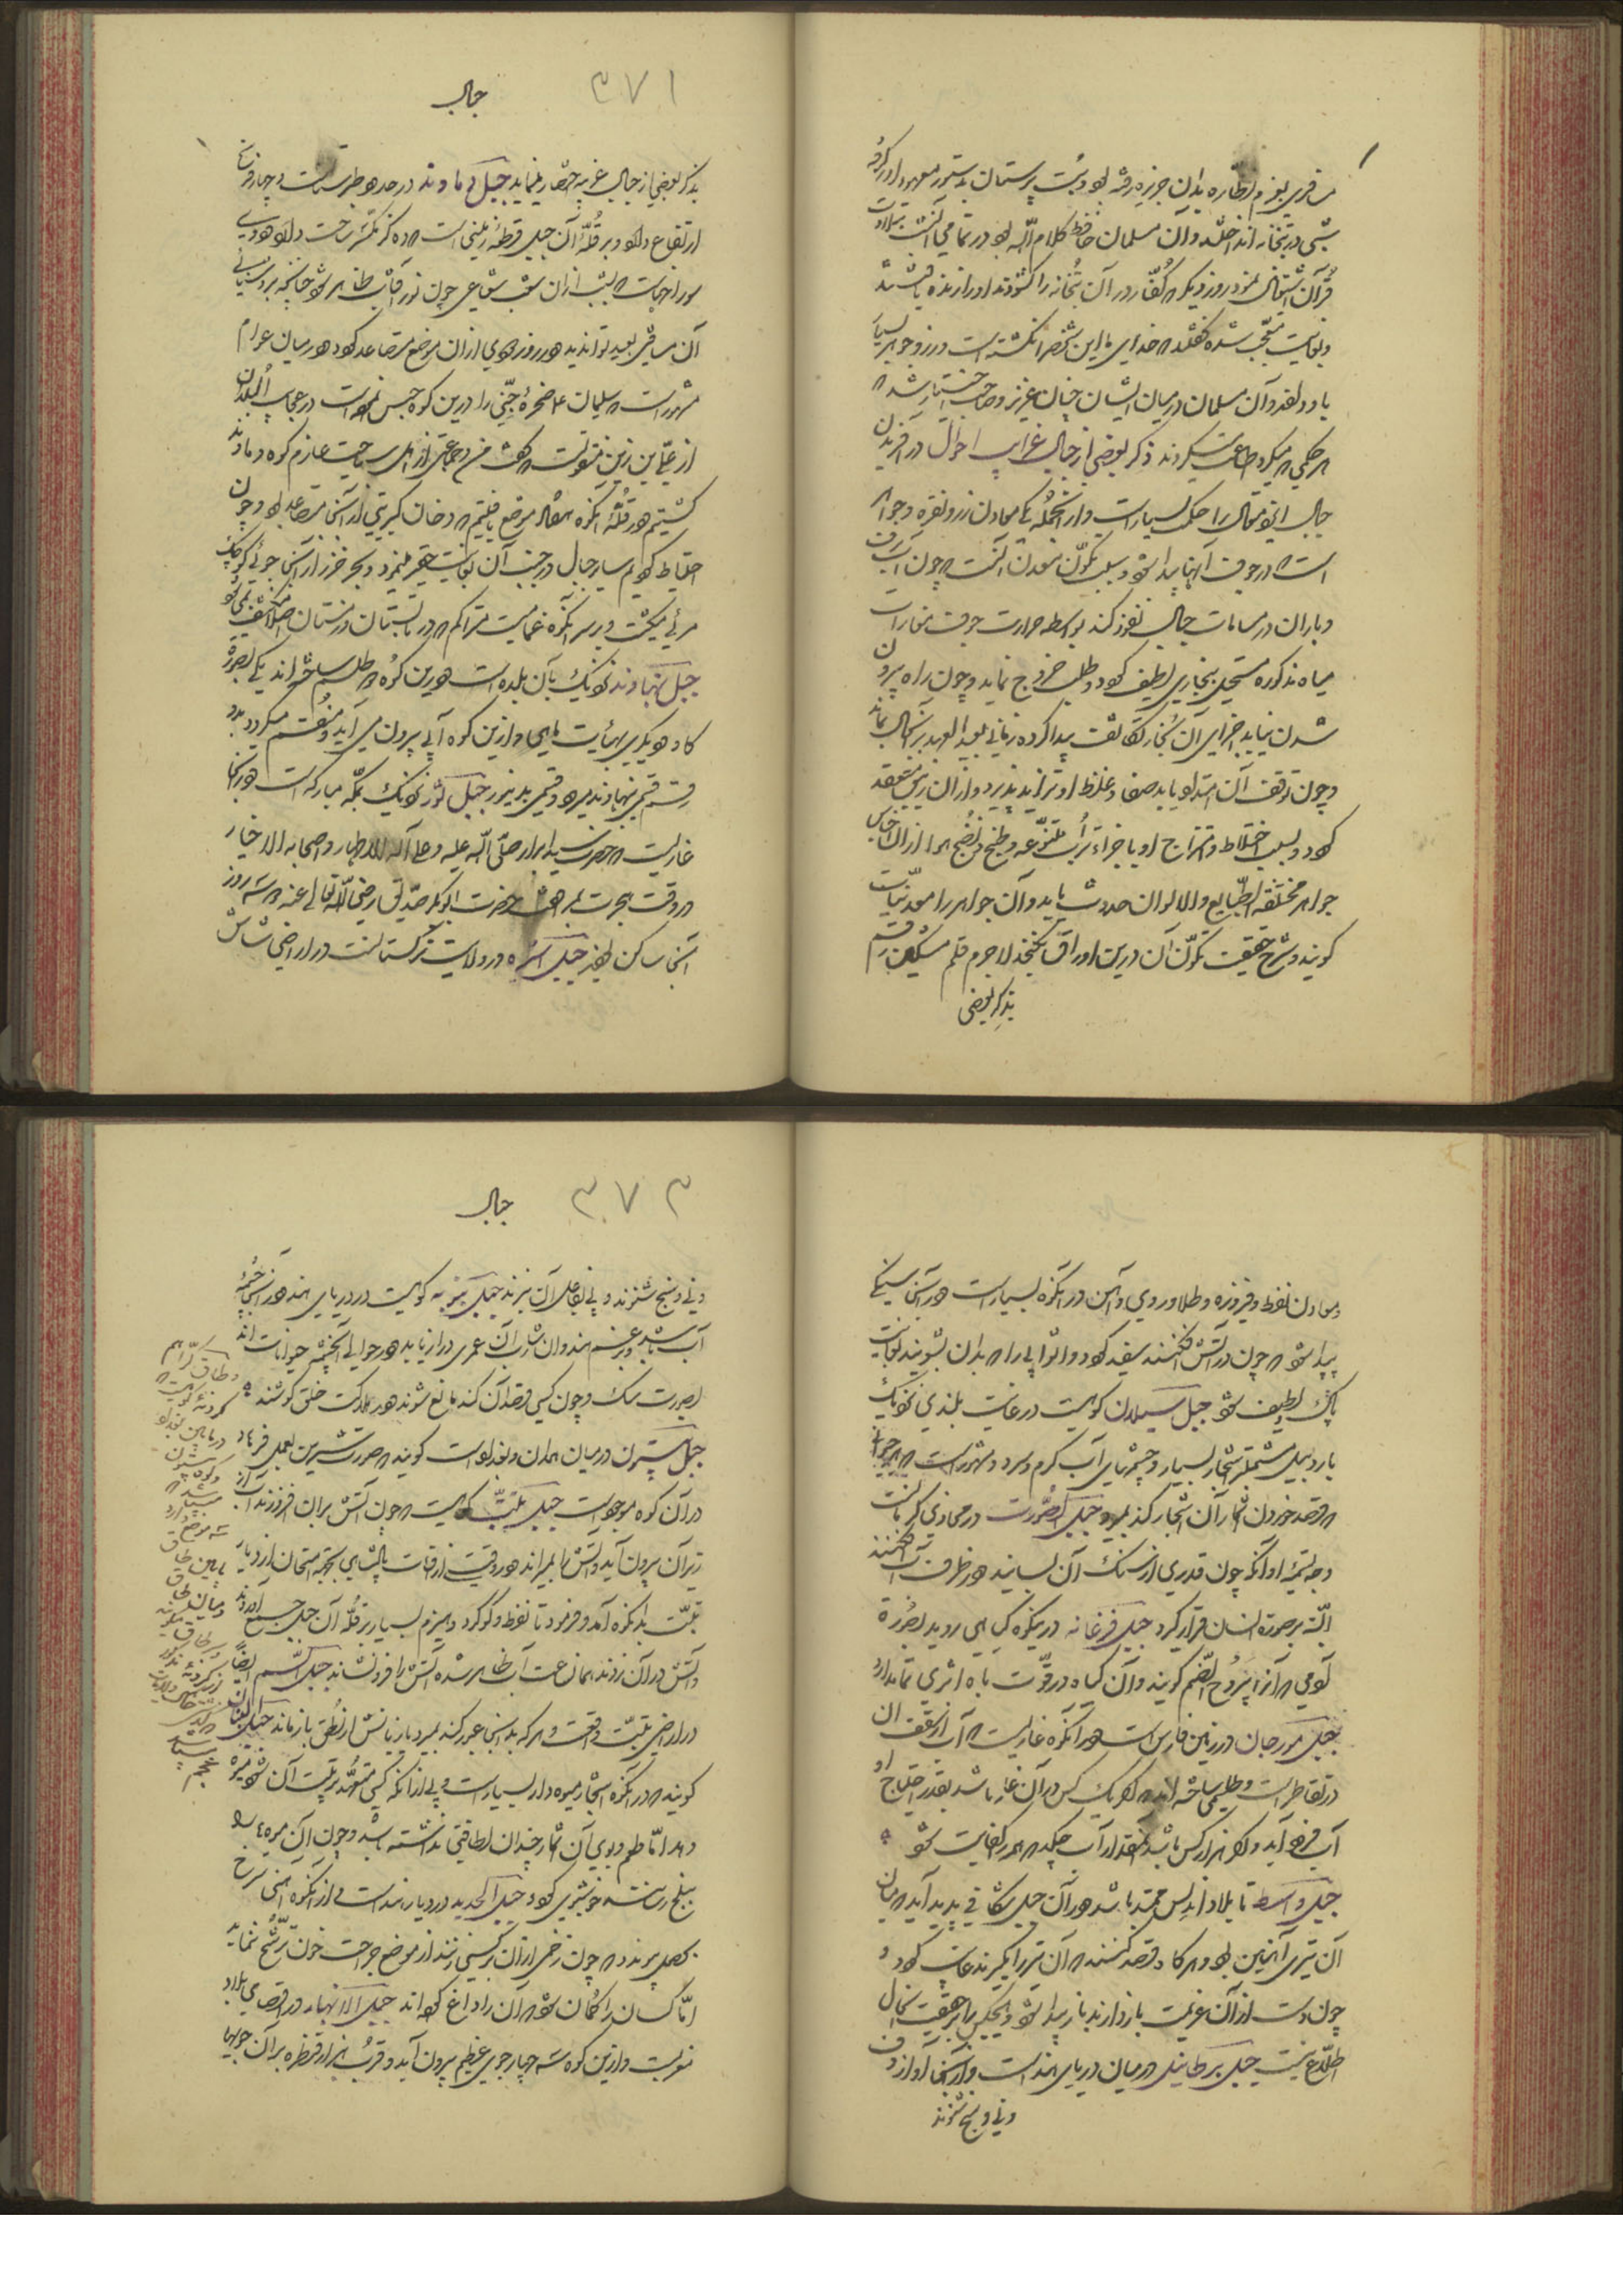 مسافری بعزم نظاره بدان جزیره رفته بود و بت پرستان بدستور معهود او را گرفته
شبی در بتخانه انداختند و آن مسلمان حافظ کلام الله بود در تمامی آن شب بتلاوت
قرآن اشتغال نمود روز دیگر که کفار در آن بتخانه را گشودند او را زنده یافتند
و بغایت متعجب شده گفتند که خدای ما این شخص را نکشته است و زر و جواهر بسیار
باو دادند و آن مسلمان در میان ایشان چنان عزیز و صاحب اختیار شد که
هر حکمی که میکرد اطاعت میکردند ذکر بعضی از جبال غرایب احوال در آفریدن
جبال ایزد متعال را حکمت بسیار است و از آنجمله یکی معادن زر و نقره و جواهر
است که در جوف آنها پیدا شود و سبب تکون معدن آنست که چون آب برف
و باران در مسامات جبال نفوذ کند بواسطه حرارت جوف مغارات
میاه مذکوره مستحیل ببخاری لطیف گردد و طلب خروج نماید و چون راه بیرون
شدن نیابد اجزای آن بخار کثافت پیدا کرده زمانی بعید العهد بر آنحال بماند
و چون توقف آن امتداد یابد صفا و غلظ او تزاید پذیرد و از آن زیبق منعقد
گردد و بسبب اختلاط و امتزاج او با اجزاء تربت متنوعه و طبخ و نضج هوا از آن اجناس
جواهر مختلفه الطبایع والالوان حدوث یابد و آن جواهر را معدنیات
گویند و شرح حقیقت تکون آن درین اوراق نگنجد لاجرم قلم مشکین رقم
بذکر بعضی
۳۷۱
جبال
بذکر بعضی از جبال غریبه اختصار مینماید جبل دماوند در حدود طبرستانست و چهار فرسخ
ارتفاع دارد و بر قله آن جبل قطعه زمینی است که ده گز در ده گز مساحت دارد و در وی
سوراخیاست که شب از آن شعاعی چون نور آفتاب ظاهر شود چنانچه بروشنائی
آن مسافتی بعید توان دید و در روز دودی از آن موضع متصاعد گردد و در میان عوام
مشهور است که سلیمان ع صخره جنی را درین کوه حبس نموده است در عجایب البلدان
از علی بن زین منقولست که گفت من و جماعتی از اهل سیاحت عازم کوه دماوند
گشتیم و در قله آنکوه هفتاد موضع یافتیم که دخان کبریتی از آنجا متصاعد بود و چون
احتیاط کردیم سایر جبال در جنب آن بغایت حقیر مینمود و بحر خزر از آنجا جوئی کوچک
مرئی میگشت و بر سر آنکوه غمامیست متراکم که در تابستان و زمستان اصلا منکشف نمی شود
جبل نهاوند نزدیک بآن بلده است و درین کوه دو طلسم ساخته اند یکی بصورت
گاو و دیگری بهیئات ماهی و ازین کوه آبی بیرون می آید و منقسم میگردد بدو
قسم قسمی بنهاوند میرود و قسمی بدینور جبل ثور نزدیک بمکه مبارکه است و در آنجا
غاریست که حضرت سید ابرار صلی الله علیه و علی آله الاطهار و اصحابه الاخیار
در وقت هجرت بمرافقت حضرت ابوبکر صدیق رضی الله تعالی عنه که سه روز
آنجا ساکن بودند جبل اسره در ولایت ترکستانست در اراضی شاش
و معادن نفط و فیروزه و طلا و روی و آهن در آنکوه بسیار است و در آنجا سنگی
پیدا شود که چون در آتش افکنند سفید گردد و اثوابی را که بدان بشویند بغایت
پاک و لطیف شود جبل سبیلان کوهیست در غایت بلندی نزدیک
باردبیل مشتمل بر اشجار بسیار و چشمهای آب گرم و سرد و مشهور است که هر حیوانی
که قصد خوردن ثمار آن اشجار کند بمیرد جبل الصورت در حدود کرمانست
وجه تسمیه او آنکه چون قدری از سنگ آن بسایند و در ظرف آب افکنند
البته بر صورت انسان قرار گیرد جبل فرغانه درین کوه گیاهی روید بصورت
آدمی که آنرا یبروح الصنم گویند و آن گیاه در قوت باه اثری تمام دارد
جبل مورجان در زمین فارس است و در آنکوه غاریست که آب از سقف آن
در تقاطر است و طلسمی ساخته اند که اگر یک کس در آن غار باشد بقدر احتیاج او
آب فرود آید و اگر هزار کس باشد آنمقدار آب چکد که همه را کفایت شود
جبل واسط تا بلاد اندلس ممتد باشد و در آن جبل شکافی پدید آمده میان
آن تبری آهنین بود و هرگاه قصد کنند که آن تبر را بگیرند غایب گردد و
چون دست از آن عزیمت باز دارند باز پیدا شود و هیچکس را بر حقیقت آنحال
اطلاع نیست جبل برطایل در میان دریای هند است و از آنجا آواز دف
و نی و سنج شنوند
۳۷۳
جبال
و نی و سنج شنوند و پی بفاعل آن نبرند جبل سرنه کوهیست در دریای هند و در آنجا چشمه
آب باشد و بزعم هندوان شارب آن عمری دراز یابد و در حوالی آنچشمه حیوانات اند
بصورت سگ و چون کسی قصد آن کند مانع شوند و در هلاکت خلق کوشند
جبل بیستون در میان همدان و بغداد است گویند که صورت شیرین بعمل فرهاد
در آن کوه موجود است جبل تبت کوهیست که چون آتش بر آن افروزند آب از
زیر آن بیرون آید و آتش را بمیراند و در وقتی از اوقات پادشاهی بجهة امتحان از دیار
تبت بدانکوه آمد و فرمود تا نفط و گوگرد و هیزم بسیار بر قله آن جبل جمع آوردند
و آتش در آن زدند همان ساعت آب ظاهر شده آتش را فرو نشاند جبل السم ایضا
در اراضی تبت واقعست و هر که بدانجا عبور کند بمیرد یا زبانش از نطق بازماند جبل لبنان
گویند که در آنکوه اشجار میوه دار بسیار است و بی از آنکه کسی متعهد تربیت آن شود میوه
دهد اما طعم و بوی آن ثمار چندان لطافتی نداشته باشد و چون آن میوه
بثلج رسد خوشبوی گردد جبل الحدید در دیار هند است و از آنکوه آهنی سرخ
بحصول پیوندد که چون زخمی از آن بر کسی زنند از موضع جراحت خون ترشح ننماید
اما کسان را گمان شود که آن را داغ کرده اند جبل الانهار در اقصای بلاد
مغربست و ازین کوه سه چهار جوی عظیم بیرون آید و قرب هزار قنطره بر آن جویها
و طاق گرا هم
در ما بین بغداد
و کوه بیستون
سه موضع دارد
پایین طاق
و میان طاق